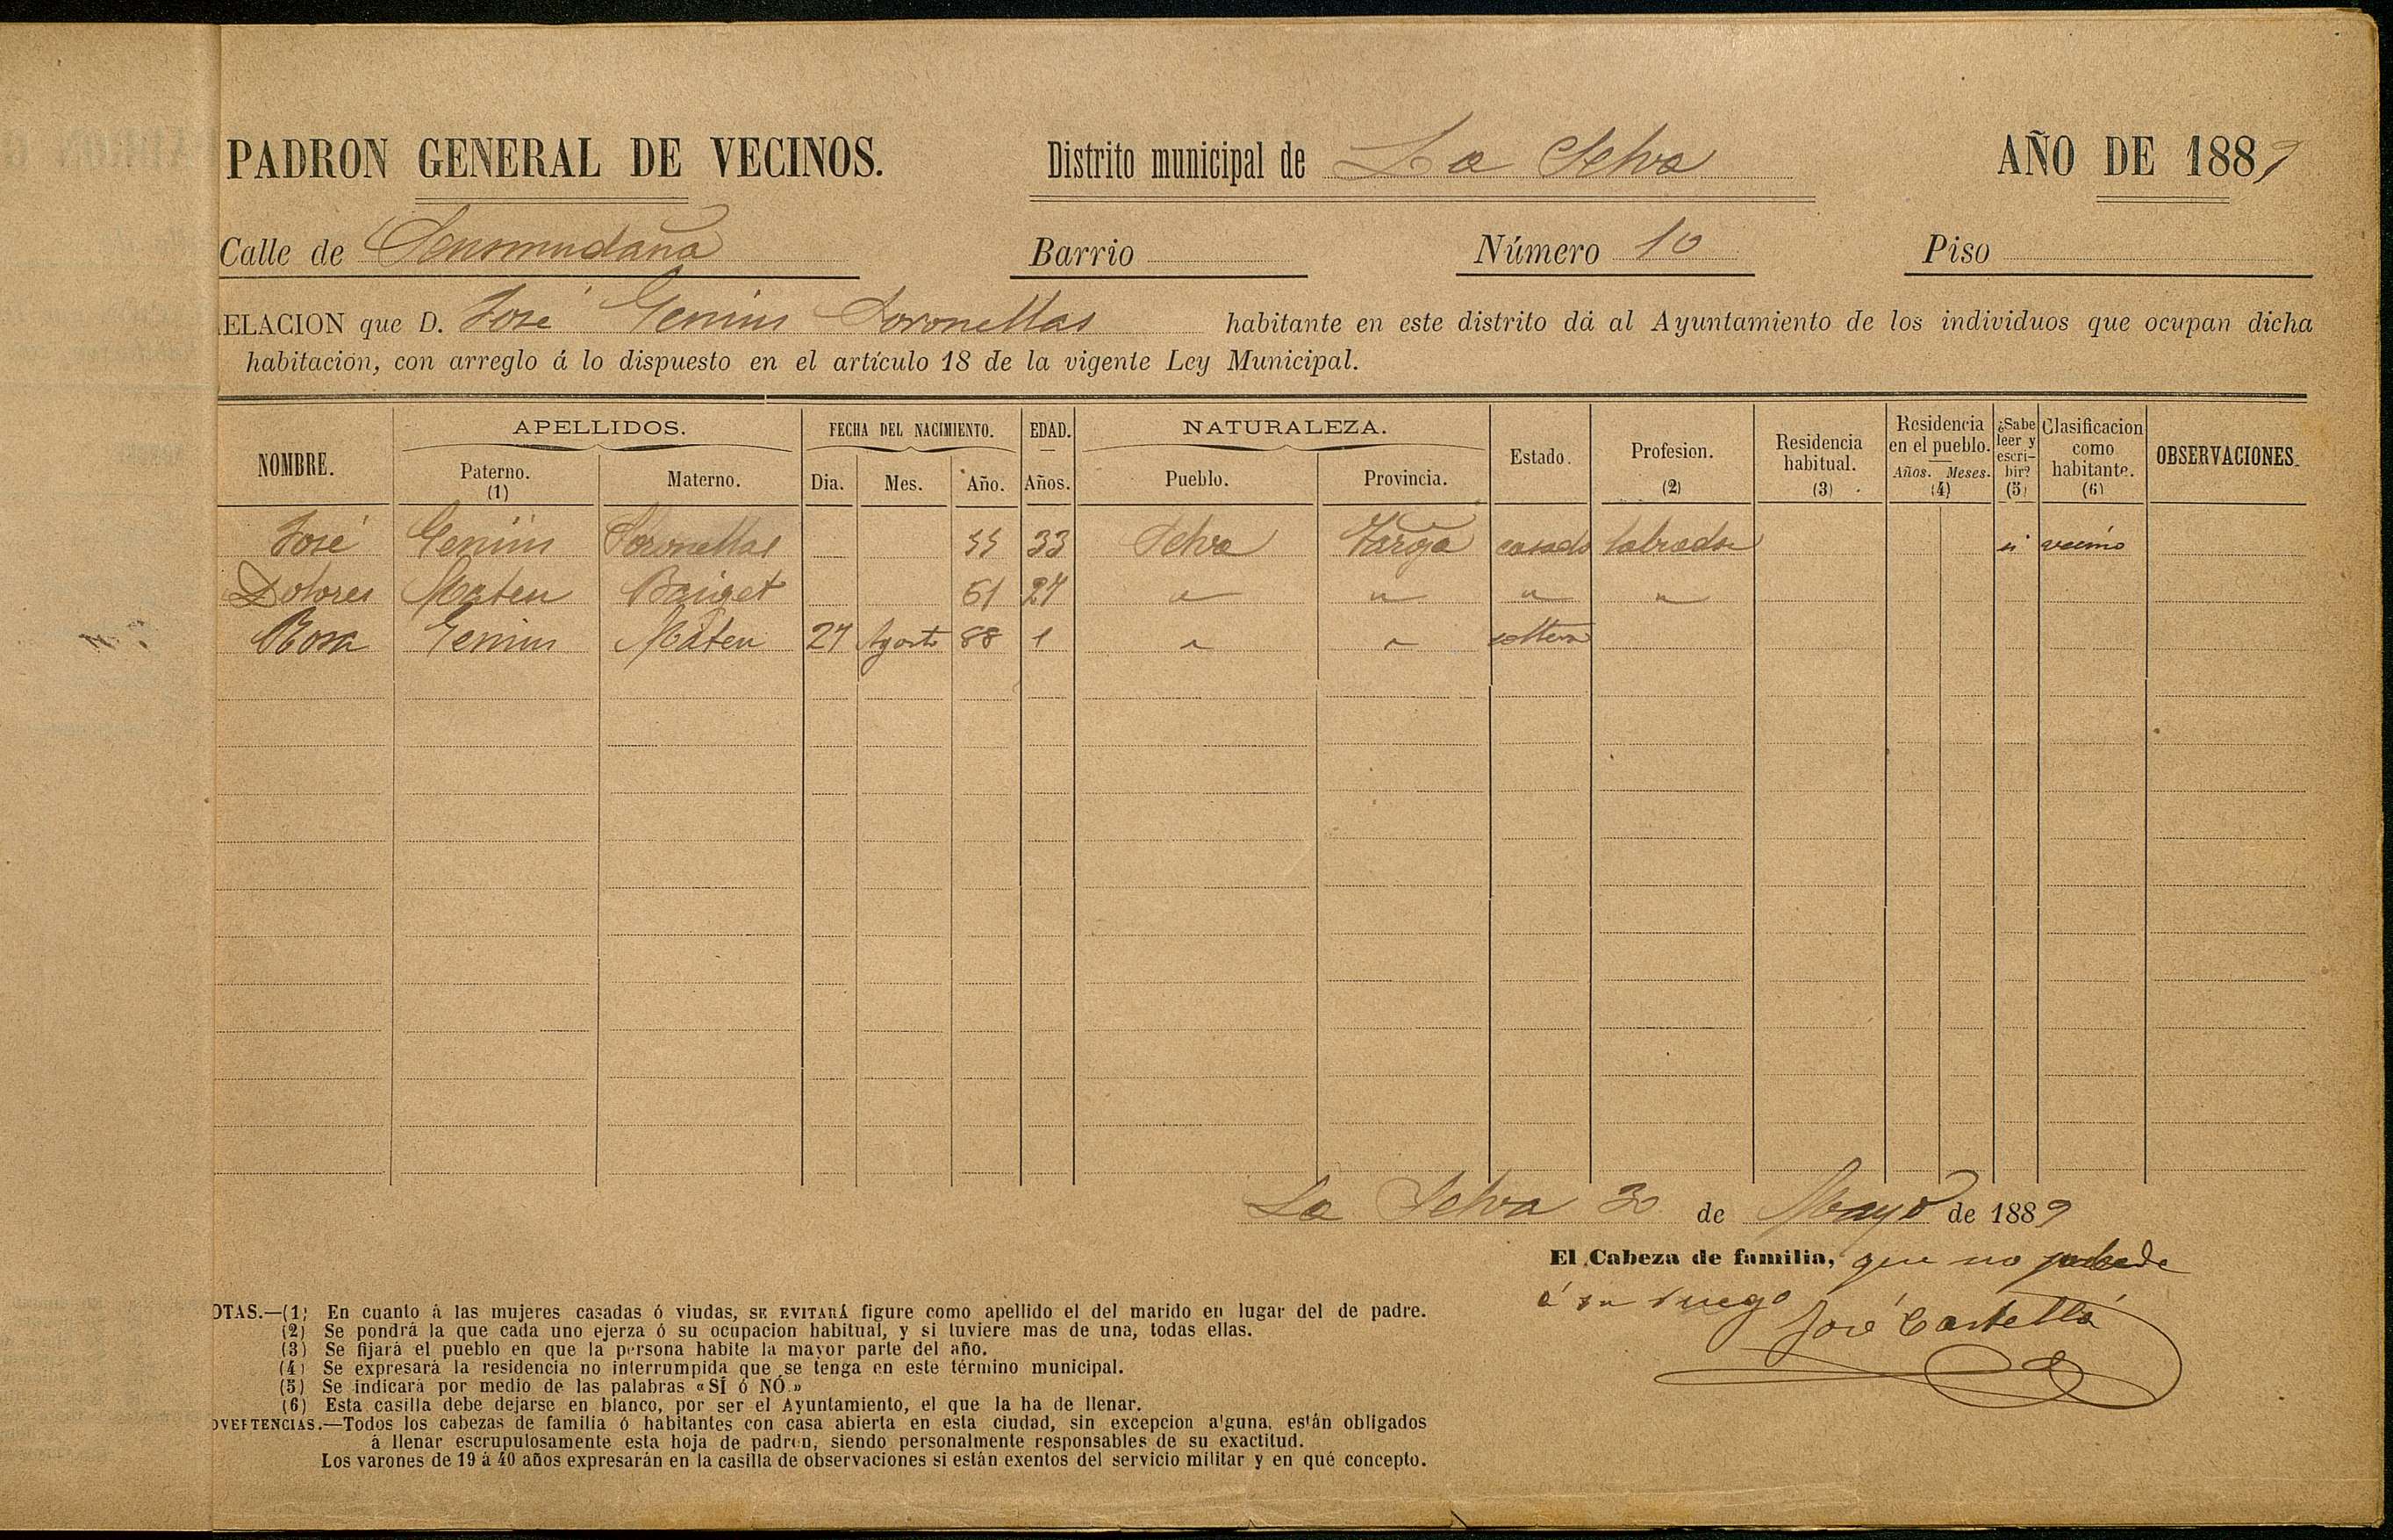 PADRON GENERAL DE VECINOS. Distrito municipal de La Selva AÑO DE 1889
Calle de Barrio Número 10 Piso
ELACION que D. José Genius Soronellas habitante en este distrito dá al Ayuntamiento de los individuos que ocupan dicha
habitacion, con arreglo á lo dispuesto en el artículo 18 de la vigente Ley Municipal.
NOMBRE. APELLIDOS. Paterno. (1) Materno. FECHA DEL NACIMIENTO. Dia. Mes. Año. EDAD. Años. NATURALEZA. Pueblo. Provincia. Estado. Profesion. (2) Residencia habitual. (3) Residencia en el pueblo. Años. Meses. (4) ¿Sabe leer y escribir? (5) Clasificacion como habitante. (6) OBSERVACIONES.
José Genius Soronellas 55 33 Selva Tarrga casado labrador si vecino
Dolores Mateu Baiget 61 27 " " " "
Rosa Genius Mateu 27 Agosto 88 1 " " soltera
La Selva 30 de Mayo de 1889
El Cabeza de familia, que no
á su ruego
José Castellá
OTAS.—(1) En cuanto á las mujeres casadas ó viudas, SE EVITARÁ figure como apellido el del marido en lugar del de padre.
(2) Se pondrá la que cada uno ejerza ó su ocupacion habitual, y si tuviere mas de una, todas ellas.
(3) Se fijará el pueblo en que la persona habite la mayor parte del año.
(4) Se expresará la residencia no interrumpida que se tenga en este término municipal.
(5) Se indicará por medio de las palabras «SÍ ó NÓ.»
(6) Esta casilla debe dejarse en blanco, por ser el Ayuntamiento, el que la ha de llenar.
DVERTENCIAS.—Todos los cabezas de familia ó habitantes con casa abierta en esta ciudad, sin excepcion alguna, están obligados
á llenar escrupulosamente esta hoja de padron, siendo personalmente responsables de su exactitud.
Los varones de 19 á 40 años expresarán en la casilla de observaciones si están exentos del servicio militar y en qué concepto.